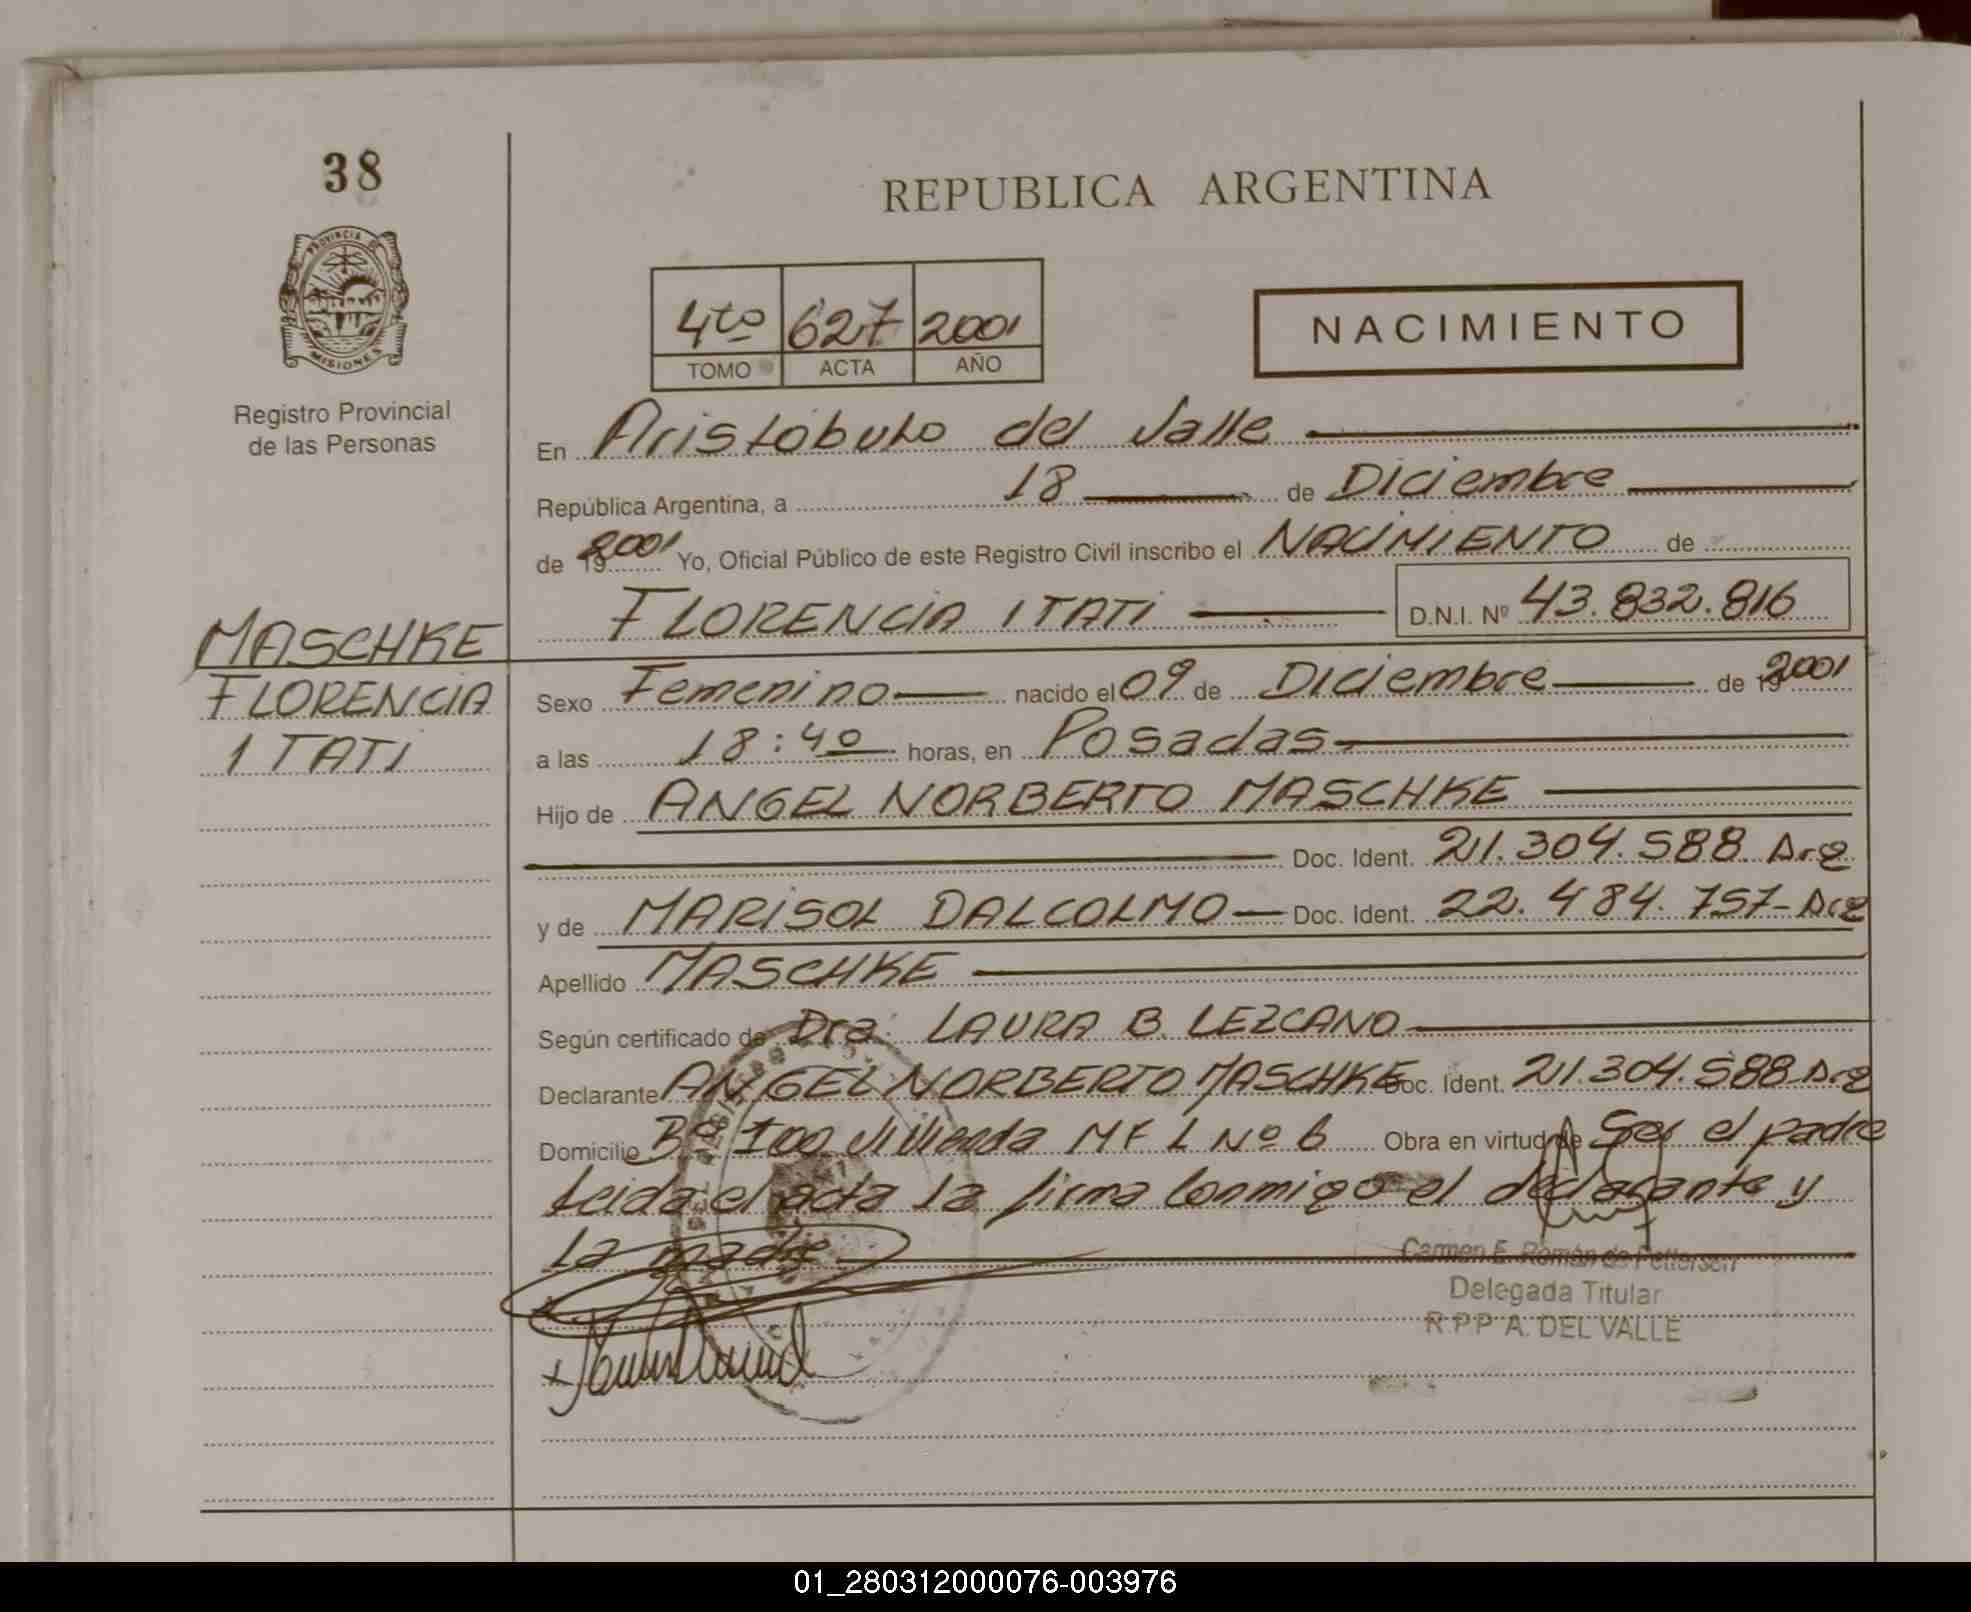 38
REPUBLICA ARGENTINA
PROVINCIA DE
MISIONES
Registro Provincial
de las Personas
4to 627 2001
TOMO ACTA AÑO
NACIMIENTO
En Aristóbulo del Valle
República Argentina, a 18 de Diciembre
de 2001 Yo, Oficial Público de este Registro Civil inscribo el NACIMIENTO de
FLORENCIA ITATI D.N.I. Nº 43.832.816
MASCHKE
FLORENCIA
ITATI
Sexo Femenino nacido el 09 de Diciembre de 2001
a las 18:40 horas, en Posadas
Hijo de ANGEL NORBERTO MASCHKE
Doc. Ident. 21.304.588 Arg
y de MARISOL DALCOLMO Doc. Ident. 22.484.757- Arg
Apellido MASCHKE
Según certificado de Dra. LAURA B. LEZCANO
Declarante ANGEL NORBERTO MASCHKE Doc. Ident. 21.304.588 Arg
Domicilio Bº 100 Vivienda M F L Nº 6 Obra en virtud de Ser el padre
Leida el acta la firma conmigo el declarante y
la madre
Carmen E. Román de Pettersen
Delegada Titular
R.P.P. A. DEL VALLE
01_280312000076-003976